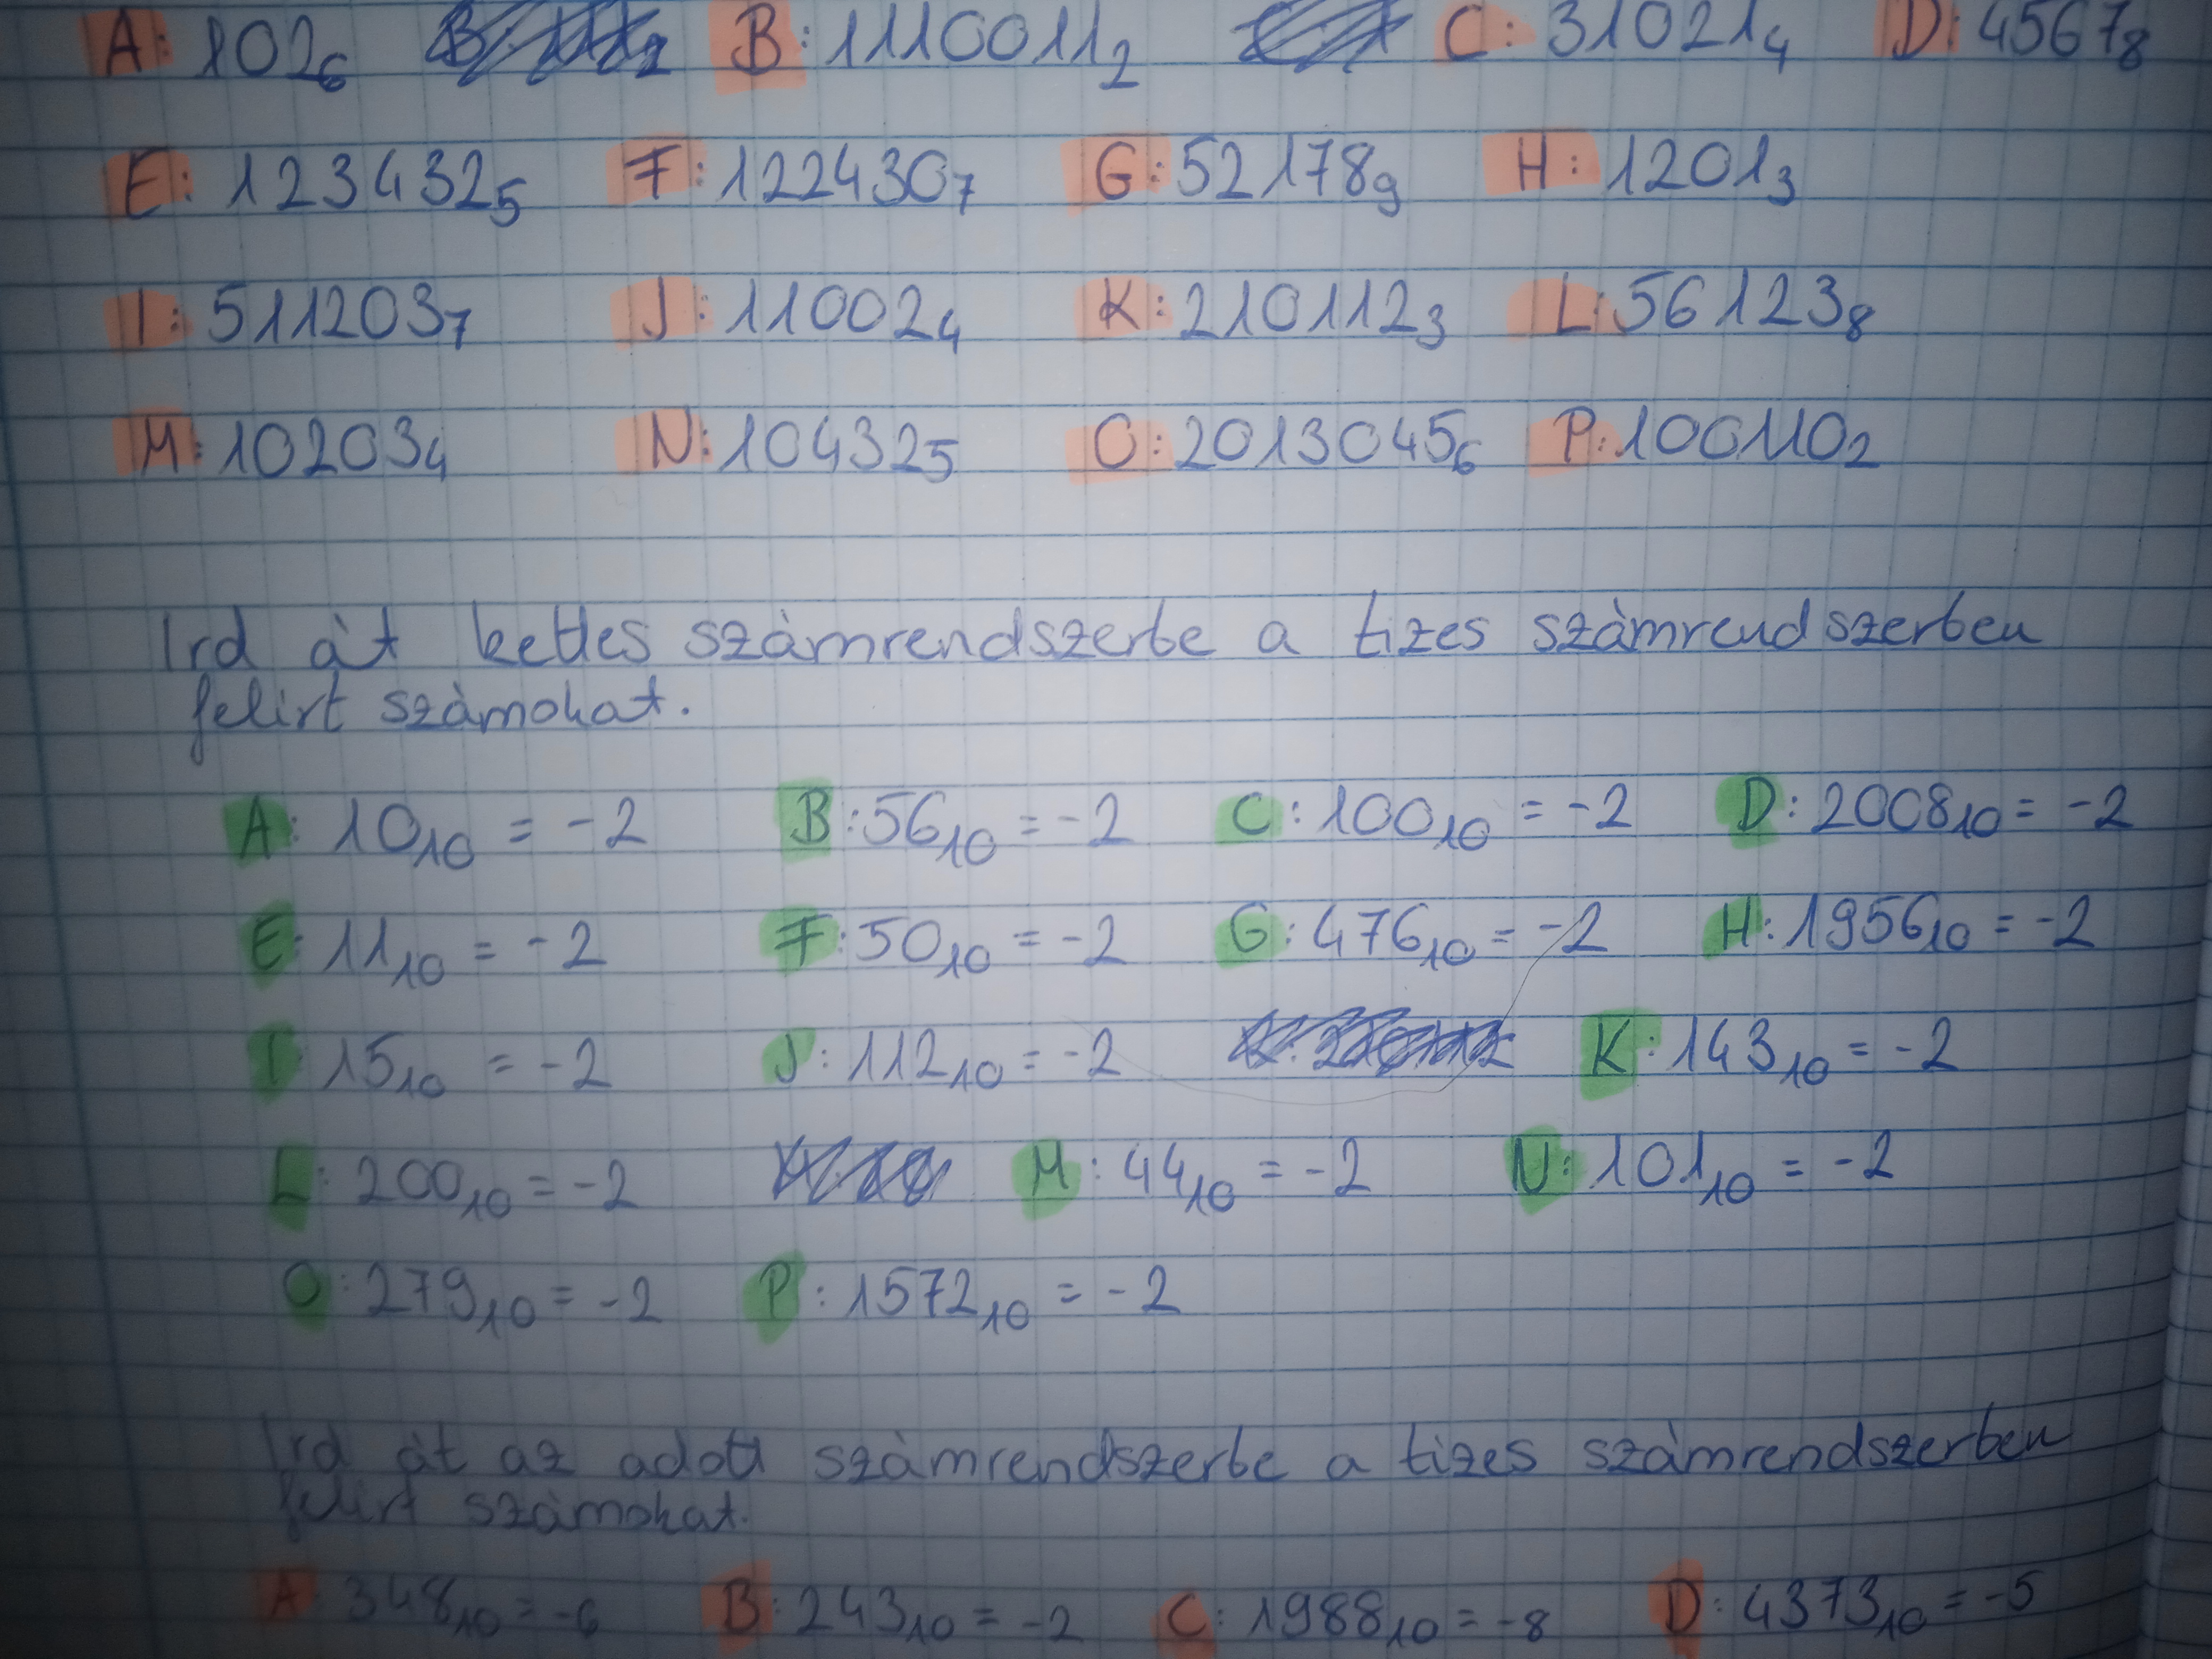 A: 102₆ B: 1110011₂ C: 31021₄ D: 4567₈
E: 123432₅ F: 122430₇ G: 52178₉ H: 1201₃
I: 511203₇ J: 11002₄ K: 210112₃ L: 56123₈
M: 10203₄ N: 10432₅ O: 2013045₆ P: 100110₂
Ird át kettes számrendszerbe a tizes számrendszerben
felírt számokat.
A: 10₁₀ = -2 B: 56₁₀ = -2 C: 100₁₀ = -2 D: 2008₁₀ = -2
E: 11₁₀ = -2 F: 50₁₀ = -2 G: 476₁₀ = -2 H: 1956₁₀ = -2
I: 15₁₀ = -2 J: 112₁₀ = -2 K: 143₁₀ = -2
L: 200₁₀ = -2 M: 44₁₀ = -2 N: 101₁₀ = -2
O: 279₁₀ = -2 P: 1572₁₀ = -2
Ird át az adott számrendszerbe a tizes számrendszerben
felírt számokat.
A: 348₁₀ = -6 B: 243₁₀ = -2 C: 1988₁₀ = -8 D: 4373₁₀ = -5